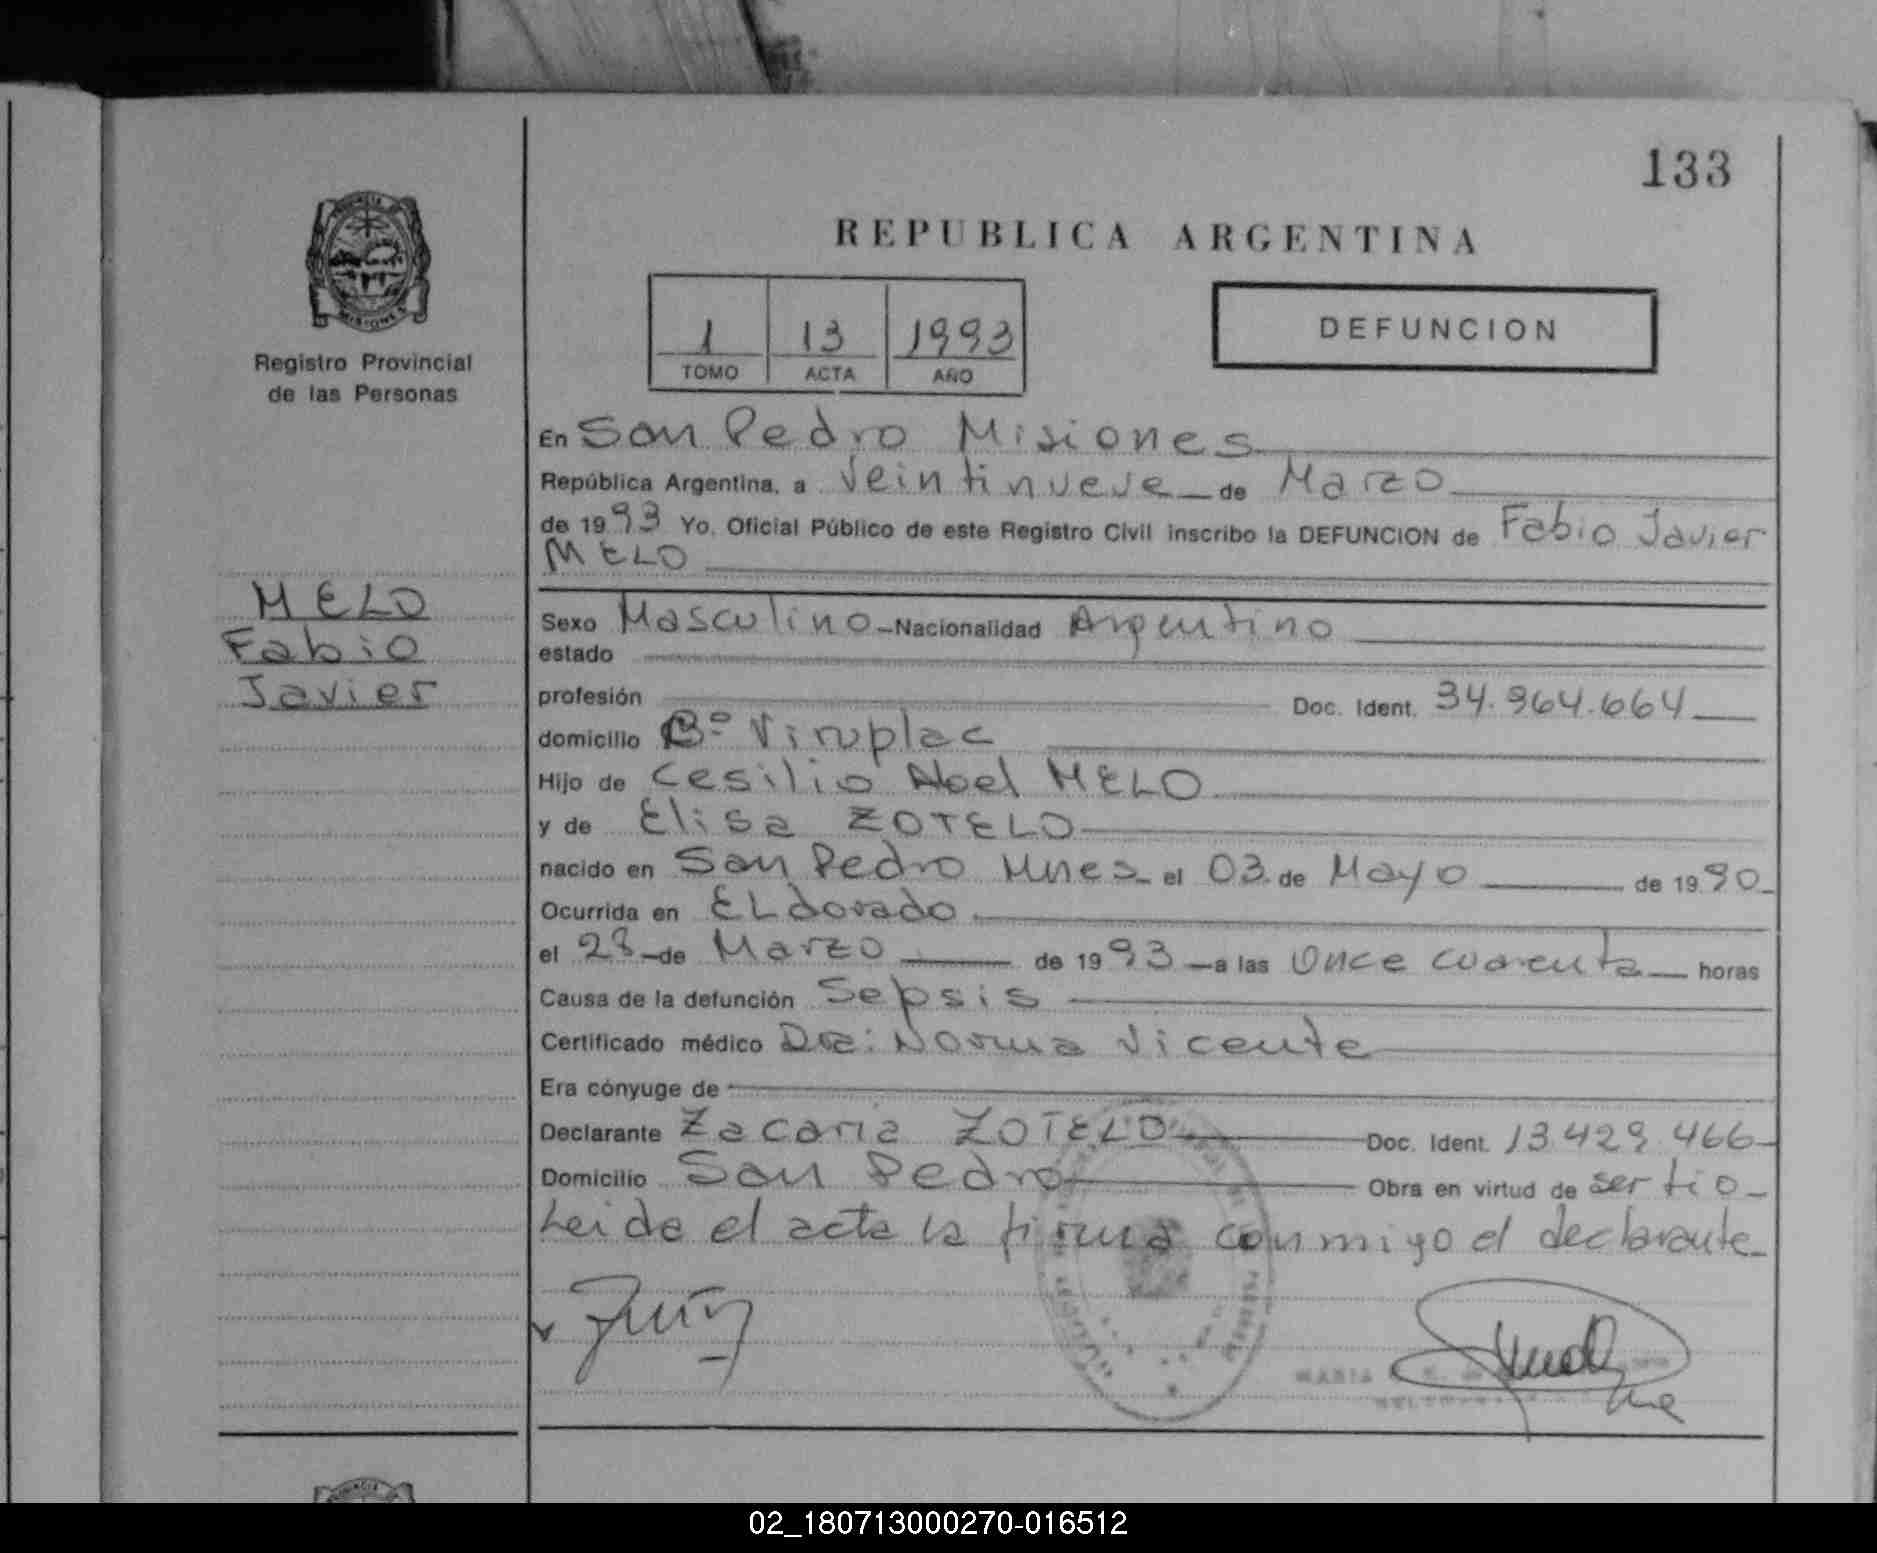 133
REPUBLICA ARGENTINA
PROVINCIA DE MISIONES
Registro Provincial
de las Personas
1 13 1993
TOMO ACTA AÑO
DEFUNCION
En San Pedro Misiones
República Argentina, a veintinueve de Marzo
de 1993 Yo, Oficial Público de este Registro Civil inscribo la DEFUNCION de Fabio Javier
MELO
MELO
Fabio
Javier
Sexo Masculino Nacionalidad Argentino
estado
profesión Doc. Ident. 34.964.664
domicilio Bº Viruplac
Hijo de Cesilio Abel MELO
y de Elisa ZOTELO
nacido en San Pedro Mnes el 03 de Mayo de 1990
Ocurrida en ELdorado
el 28 de Marzo de 1993 a las Once cuarenta horas
Causa de la defunción Sepsis
Certificado médico Dra: Norma Vicente
Era cónyuge de
Declarante Zacaria ZOTELO Doc. Ident. 13.429.466
Domicilio San Pedro Obra en virtud de ser tio
Leida el acta la firma conmigo el declarante
MARIA
02_180713000270-016512